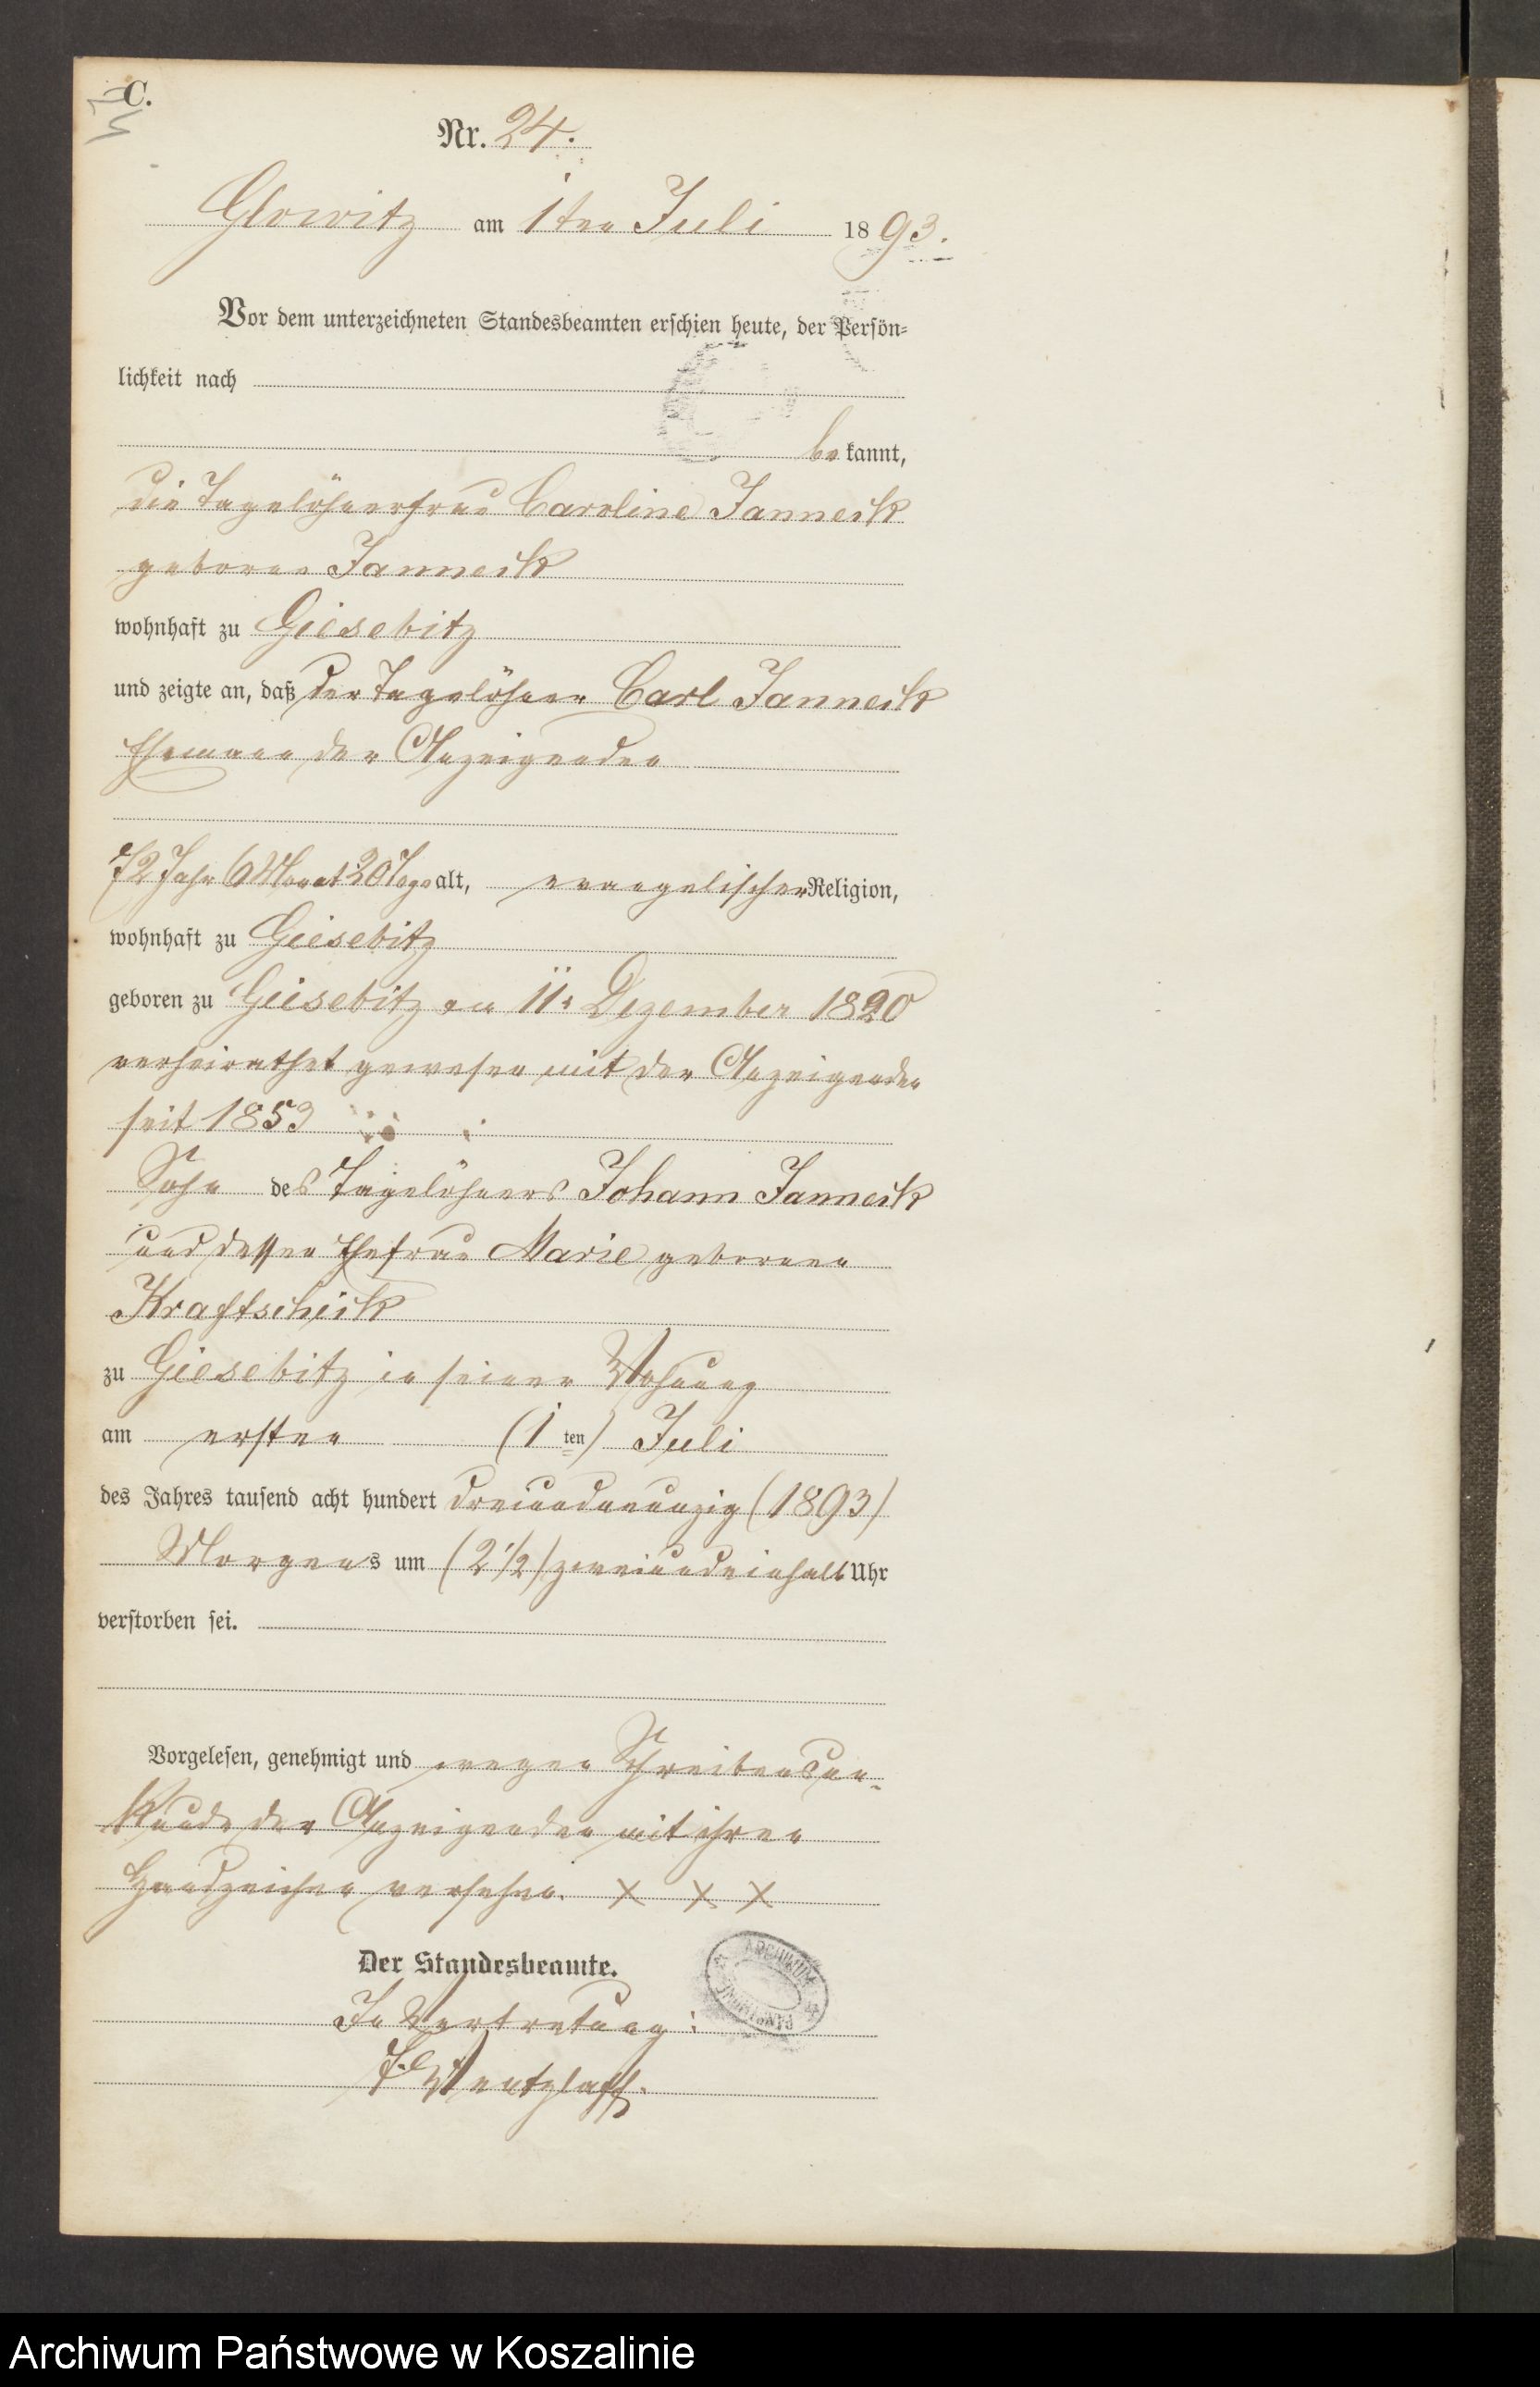 C.
Nr. 24.
Glowitz am 1ten Juli 1893.
Vor dem unterzeichneten Standesbeamten erschien heute, der Persön-
lichkeit nach
be kannt,
die Tagelöhnerfrau Caroline Janneck
geborne Janneck
wohnhaft zu Giesebitz
und zeigte an, daß der Tagelöhner Carl Janneck
Ehemann der Anzeigenden
72 Jahr 6 Monat 20 Tage alt, evangelischer Religion,
wohnhaft zu Giesebitz
geboren zu Giesebitz am 11. Dezember 1820
verheirathet gewesen mit der Anzeigenden
seit 1853
Sohn des Tagelöhners Johann Janneck
und dessen Ehefrau Marie geborenen
Kraftscheck
zu Giesebitz in seiner Wohnung
am ersten (1 ten) Juli
des Jahres tausend acht hundert dreiundneunzig (1893)
Morgens um (2 1/2) zweiundeinhalb Uhr
verstorben sei.
Vorgelesen, genehmigt und wegen Schreibensun-
kunde der Anzeigenden mit ihren
Handzeichen versehen. X X X
Der Standesbeamte.
In Vertretung:
Wentzlaff.
ARCHIWUM
Archiwum Państwowe w Koszalinie